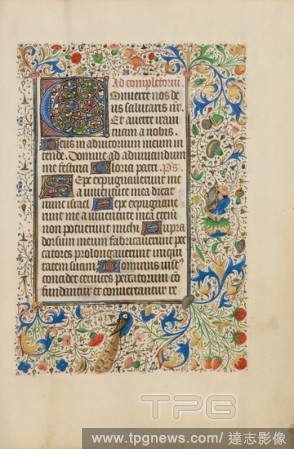 Ad completorii.
Onuerte nos de
us salutaris nr̄.
Et auerte iram
tuam a nobis.
Deus in adiutorium meum in
tende. Domine ad adiuuandum
me festina. Gloria patri. p̄s.
Sepe expugnauerunt me
a iuuentute mea dicat
nunc israel. Sepe expugnaue
runt me a iuuentute mea etenī
non potuerunt michi. Supra
dorsum meum fabricauerunt pec
catores prolongauerunt iniqui
tatem suam. Dominus iust
concidet ceruices peccatorum cō
fundantur et conuertantur re
TPG
www.tpgnews.com／達志影像